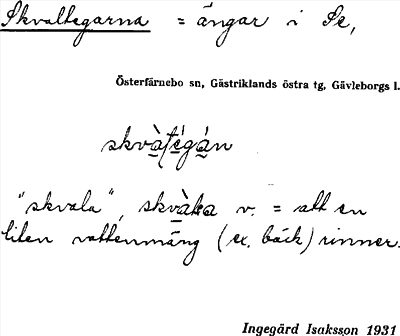 Skvaltegarna = ängar i Se,
Österfärnebo sn, Gästriklands östra tg, Gävleborgs l.
skvàtégán
"skvala", skvàka v. = att en
liten vattenmäng (ex. bäck) rinner.
Ingegärd Isaksson 1931